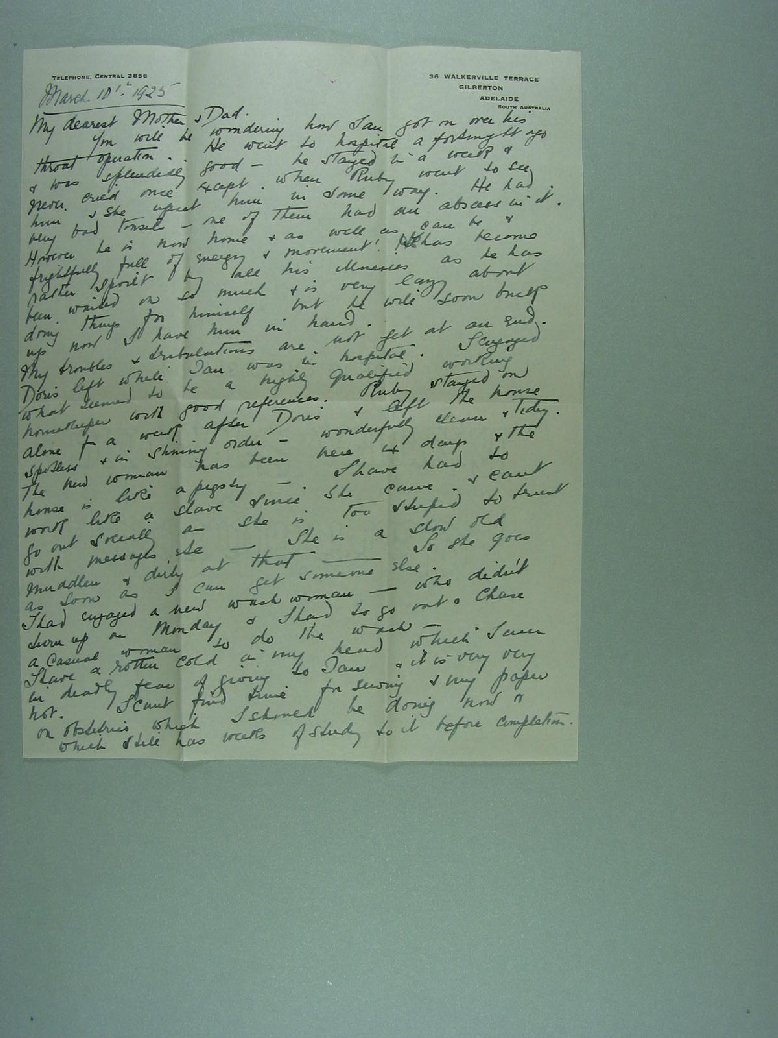 TELEPHONE, CENTRAL 2859
36 WALKERVILLE TERRACE
GILBERTON
ADELAIDE
SOUTH AUSTRALIA
March 10th. 1925
My dearest Mother & Dad.
You will be wondering how Ian got on over his
throat operation. He went to hospital a fortnight ago
& was splendidly good — he stayed in a week &
never cried once except when Ruby went to see
him & she upset him in some way. He had
very bad tonsils — one of them had an abscess in it.
However he is now home & as well as can be &
frightfully full of energy & movement! He has become
rather spoilt by all his illnesses as he has
been waited on so much & is very lazy about
doing things for himself but he will soon buck
up now I have him in hand.
My troubles & tribulations are not yet at an end.
Doris left while Ian was in hospital. I engaged
what seemed to be a highly qualified working
housekeeper with good references. Ruby stayed on
alone for a week after Doris & left the house
spotless & in shining order — wonderfully clean & tidy.
The new woman has been here 4 days & the
house is like a pigsty — I have had to
work like a slave since she came & can't
go out socially as she is too stupid to trust
with messages etc — She is a slow old
muddler & dirty at that — So she goes
as soon as I can get someone else.
I had engaged a new wash woman — who didn't
turn up on Monday & I had to go out & chase
a casual woman to do the wash —
I have a rotten cold in my head which I am
in deadly fear of giving to Ian & it is very very
hot. I can't find time for sewing & my paper
on obstetrics which I should be doing now &
which still has weeks of study to it before completion.